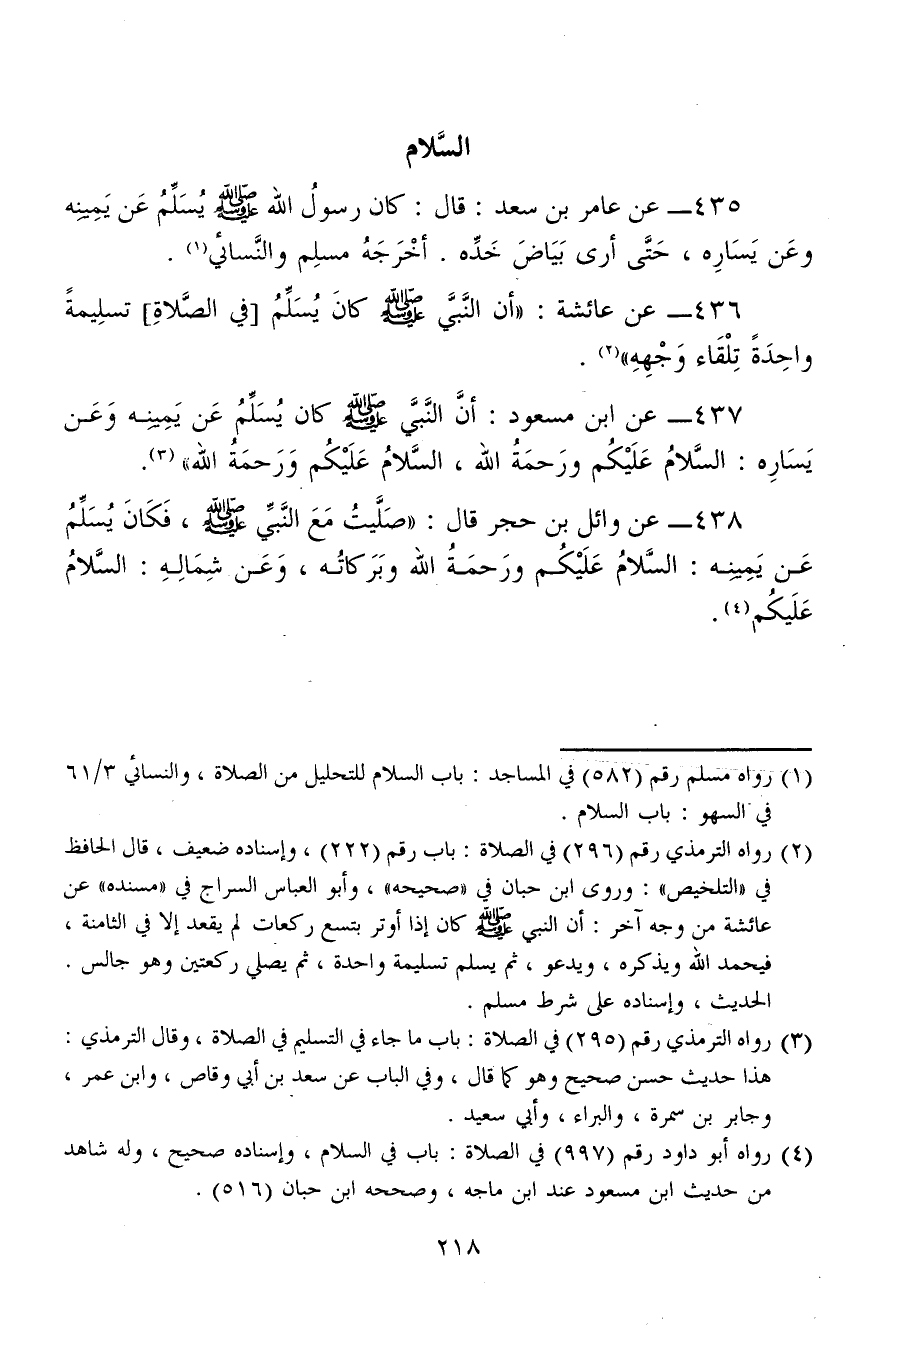 السَّلام
٤٣٥ــ عن عامر بن سعد : قال : كان رسولُ الله ﷺ يُسَلِّمُ عَن يَمِينِه
وعَن يَسَارِه ، حَتَّى أرى بَيَاضَ خَدِّه . أخْرَجَهُ مسلِم والنَّسائيُ(١) .
٤٣٦ــ عن عائشة : «أن النَّبيَّ ﷺ كانَ يُسَلِّمُ [في الصَّلاةِ] تسلِيمةً
واحِدَةً تِلْقَاء وَجْهِهِ»(٢) .
٤٣٧ــ عن ابن مسعود : أنَّ النَّبيَّ ﷺ كان يُسَلِّمُ عَن يَمِينِـه وَعَـن
يَسَارِه : السَّلامُ عَلَيْكُم ورَحمَةُ الله ، السَّلامُ عَلَيْكُم وَرَحمَةُ الله» (٣).
٤٣٨ــ عن وائل بن حجر قال : «صَلَّيتُ مَعَ النَّبيِّ ﷺ ، فَكَانَ يُسَلِّمُ
عَـن يَمِينِـه : السَّلامُ عَلَيْكُـم ورَحمَـةُ الله وبَرَكاتُـه ، وَعَـن شِمَالِـهِ : السَّلامُ
عَلَيكُم(٤) .
(١) رواه مسلم رقم (٥٨٢) في المساجد : باب السلام للتحليل من الصلاة ، والنسائيُ ٦١/٣
في السهو : باب السلام .
(٢) رواه الترمذي رقم (٢٩٦) في الصلاة : باب رقم (٢٢٢) ، وإسناده ضعيف ، قال الحافظ
في «التلخيص» : وروى ابن حبان في «صحيحه» ، وأبو العباس السراج في «مسنده» عن
عائشة من وجه آخر : أن النبي ﷺ كان إذا أوتر بتسع ركعات لم يقعد إلا في الثامنة ،
فيحمد الله ويذكره ، ويدعو ، ثم يسلم تسليمة واحدة ، ثم يصلي ركعتين وهو جالس .
الحديث ، وإسناده على شرط مسلم .
(٣) رواه الترمذي رقم (٢٩٥) في الصلاة : باب ما جاء في التسليم في الصلاة ، وقال الترمذي :
هذا حديث حسن صحيح وهو كما قال ، وفي الباب عن سعد بن أبي وقاص ، وابن عمر ،
وجابر بن سمرة ، والبراء ، وأبي سعيد .
(٤) رواه أبو داود رقم (٩٩٧) في الصلاة : باب في السلام ، وإسناده صحيح ، وله شاهد
من حديث ابن مسعود عند ابن ماجه ، وصححه ابن حبان (٥١٦) .
٢١٨